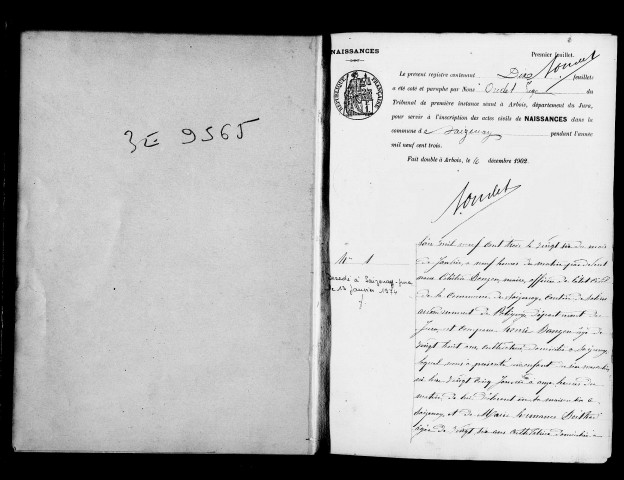 3E 9565
NAISSANCES
Premier feuillet.
RÉPUBLIQUE FRANÇAISE
Le présent registre contenant Dix feuillets
a été coté et paraphé par Nous Oudet Juge du
Tribunal de première instance séant à Arbois, département du Jura,
pour servir à l'inscription des actes civils de NAISSANCES dans la
commune de Saizenay pendant l'année
mil neuf cent trois.
Fait double à Arbois, le 16 décembre 1902.
Oudet
N° 1
Décédé à Saizenay-Jura
le 13 Janvier 1974
L'an mil neuf cent trois le vingt six du mois
de Janvier à neuf heures du matin par devant
nous maire, officier de l'état civil
de la commune de Saizenay, canton de Salins
arrondissement de Poligny, département du
Jura, est comparu âgé de
vingt huit ans, cultivateur, domicilié à Saizenay,
lequel nous a présenté un enfant du sexe masculin,
né hier vingt cinq Janvier à onze heures du
matin de lui déclarant en sa maison à
Saizenay, et de Marie
âgée de vingt six ans cultivatrice domiciliée à